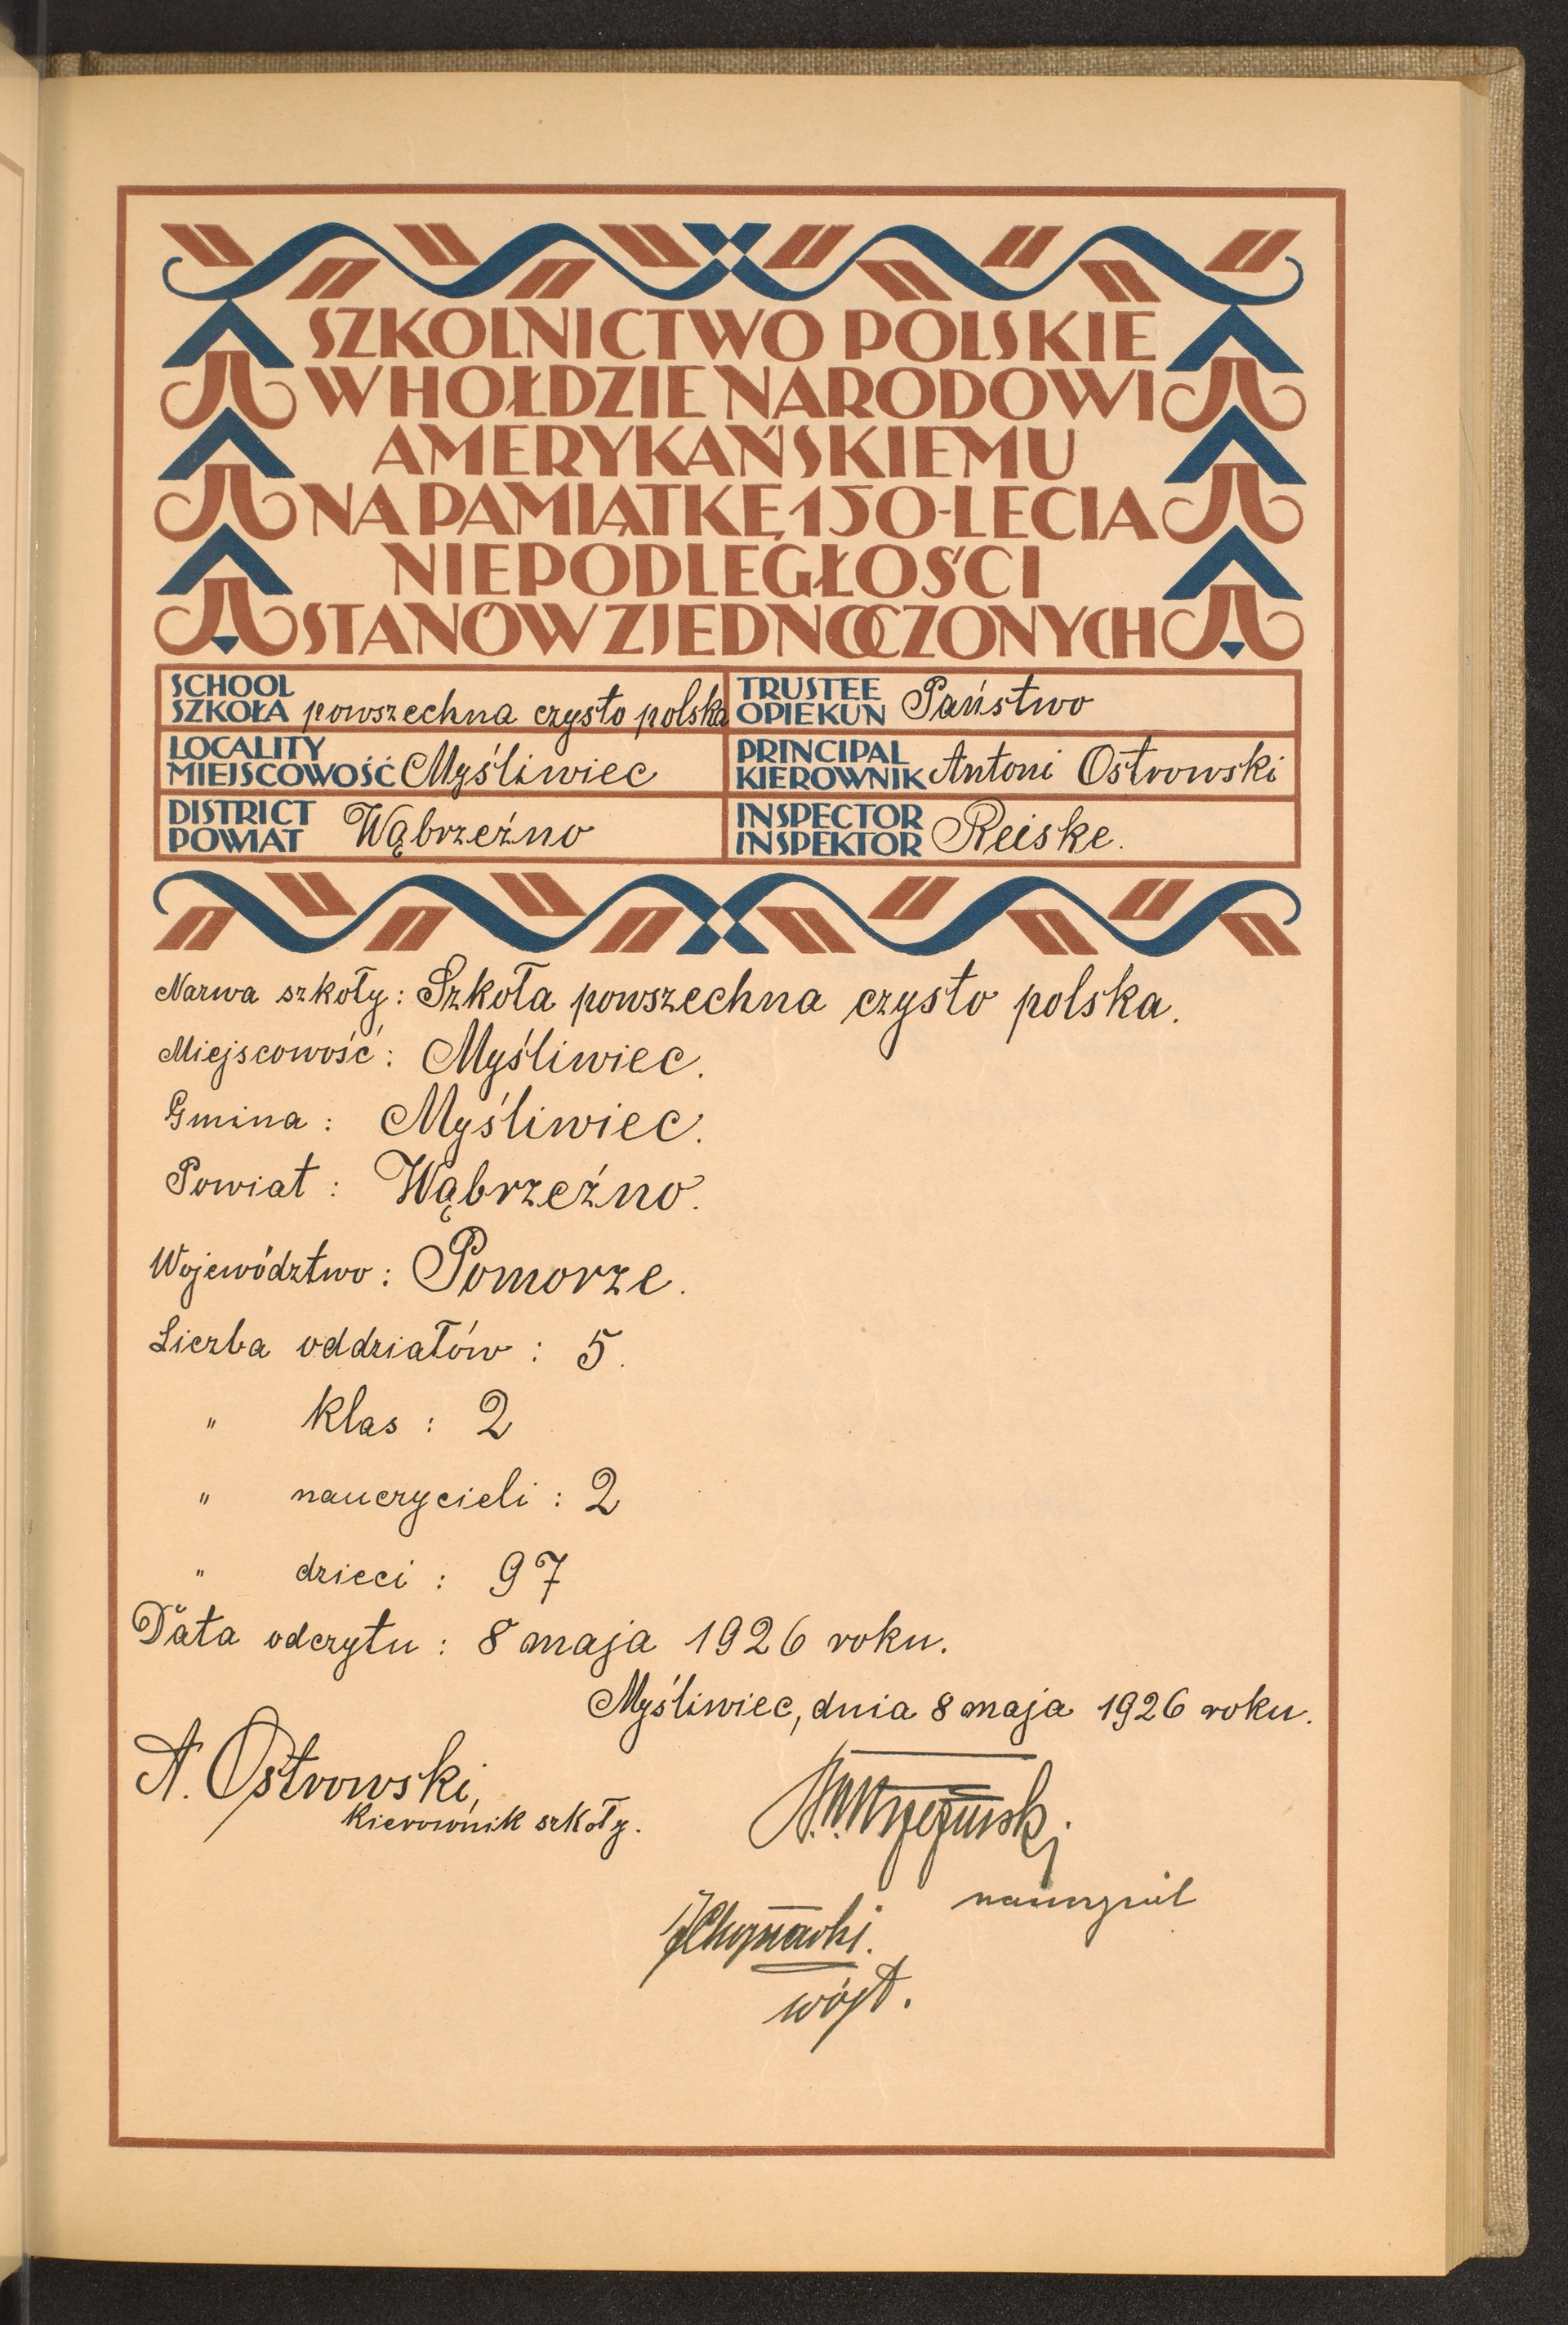 SZKOLNICTWO POLSKIE
W HOŁDZIE NARODOWI
AMERYKAŃSKIEMU
NA PAMIĄTKĘ 150-LECIA
NIEPODLEGŁOŚCI
STANÓW ZJEDNOCZONYCH
SCHOOL
SZKOŁA powszechna czysto polska
TRUSTEE
OPIEKUN Państwo
LOCALITY
MIEJSCOWOŚĆ Myśliwiec
PRINCIPAL
KIEROWNIK Antoni Ostrowski
DISTRICT
POWIAT Wąbrzeźno
INSPECTOR
INSPEKTOR Reiske.
Nazwa szkoły: Szkoła powszechna czysto polska.
Miejscowość: Myśliwiec.
Gmina: Myśliwiec.
Powiat: Wąbrzeźno.
Województwo: Pomorze.
Liczba oddziałów: 5.
" klas: 2
" nauczycieli: 2
" dzieci: 97
Data odczytu: 8 maja 1926 roku.
Myśliwiec, dnia 8 maja 1926 roku.
A. Ostrowski,
kierownik szkoły.
nauczyciel
wójt.